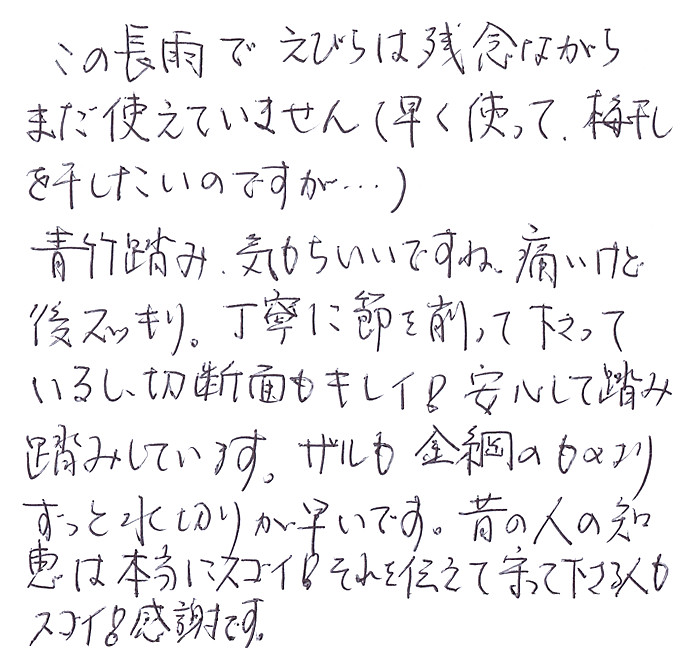 この長雨で えびらは残念ながら
まだ使えていません(早く使って、梅干し
を干したいのですが…)
青竹踏み、気もちいいですね。痛いけど
後スッキリ。丁寧に節を削って下さって
いるし、切断面もキレイ!安心して踏み
踏みしています。ザルも 金網のものより
ずっと水切りが早いです。昔の人の知
恵は本当にスゴイ!それを伝えて守って下さる人も
スゴイ!感謝です。